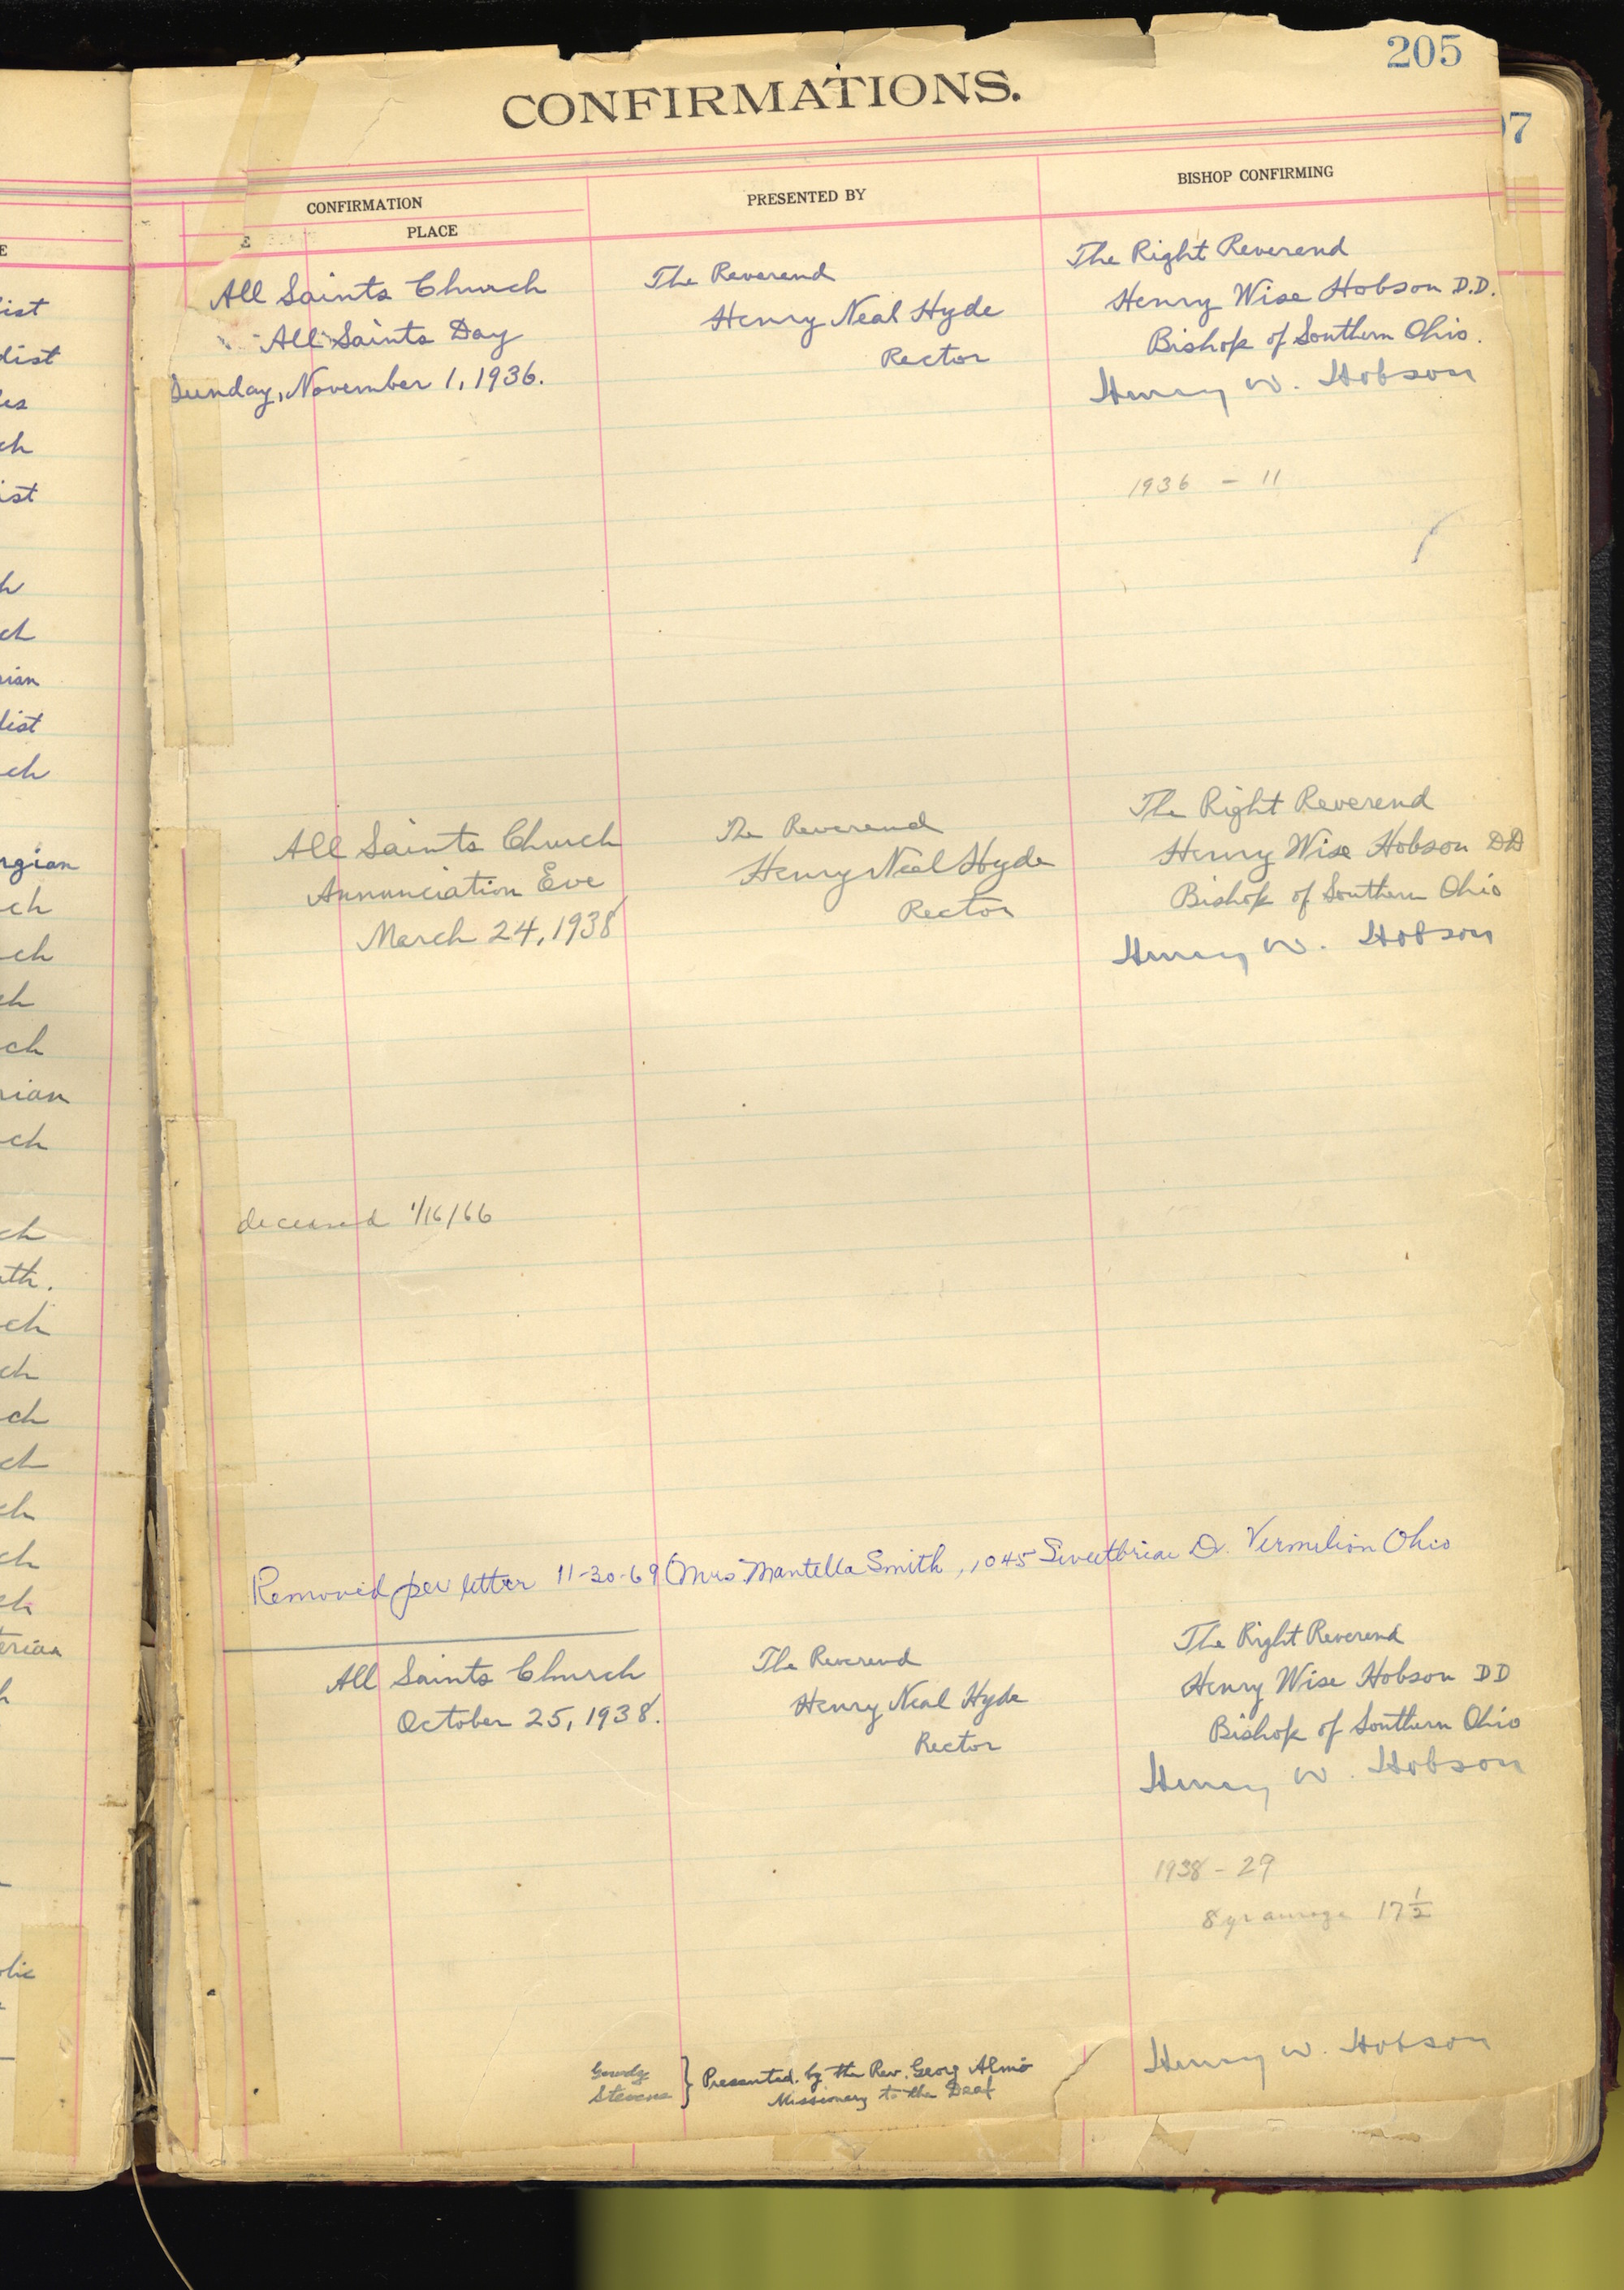 205
CONFIRMATIONS.
07
CONFIRMATION
PRESENTED BY
BISHOP CONFIRMING
E
PLACE
All Saints Church
All Saints Day
Sunday, November 1, 1936.
The Reverend
Henry Neal Hyde
Rector
The Right Reverend
Henry Wise Hobson D.D.
Bishop of Southern Ohio.
Henry W. Hobson
1936 - 11
All Saints Church
Annunciation Eve
March 24, 1938
The Reverend
Henry Neal Hyde
Rector
The Right Reverend
Henry Wise Hobson DD
Bishop of Southern Ohio
Henry W. Hobson
deceased 1/16/66
Removed per letter 11-30-69 (Mrs. Mantella Smith, 1045 Sweetbriar Dr. Vermilion Ohio
All Saints Church
October 25, 1938.
The Reverend
Henry Neal Hyde
Rector
The Right Reverend
Henry Wise Hobson DD
Bishop of Southern Ohio
Henry W. Hobson
1938 - 29
8 yr average 17 1/2
Stevens
} Presented by the Rev. Georg Almo
Missionary to the Deaf
Henry W. Hobson